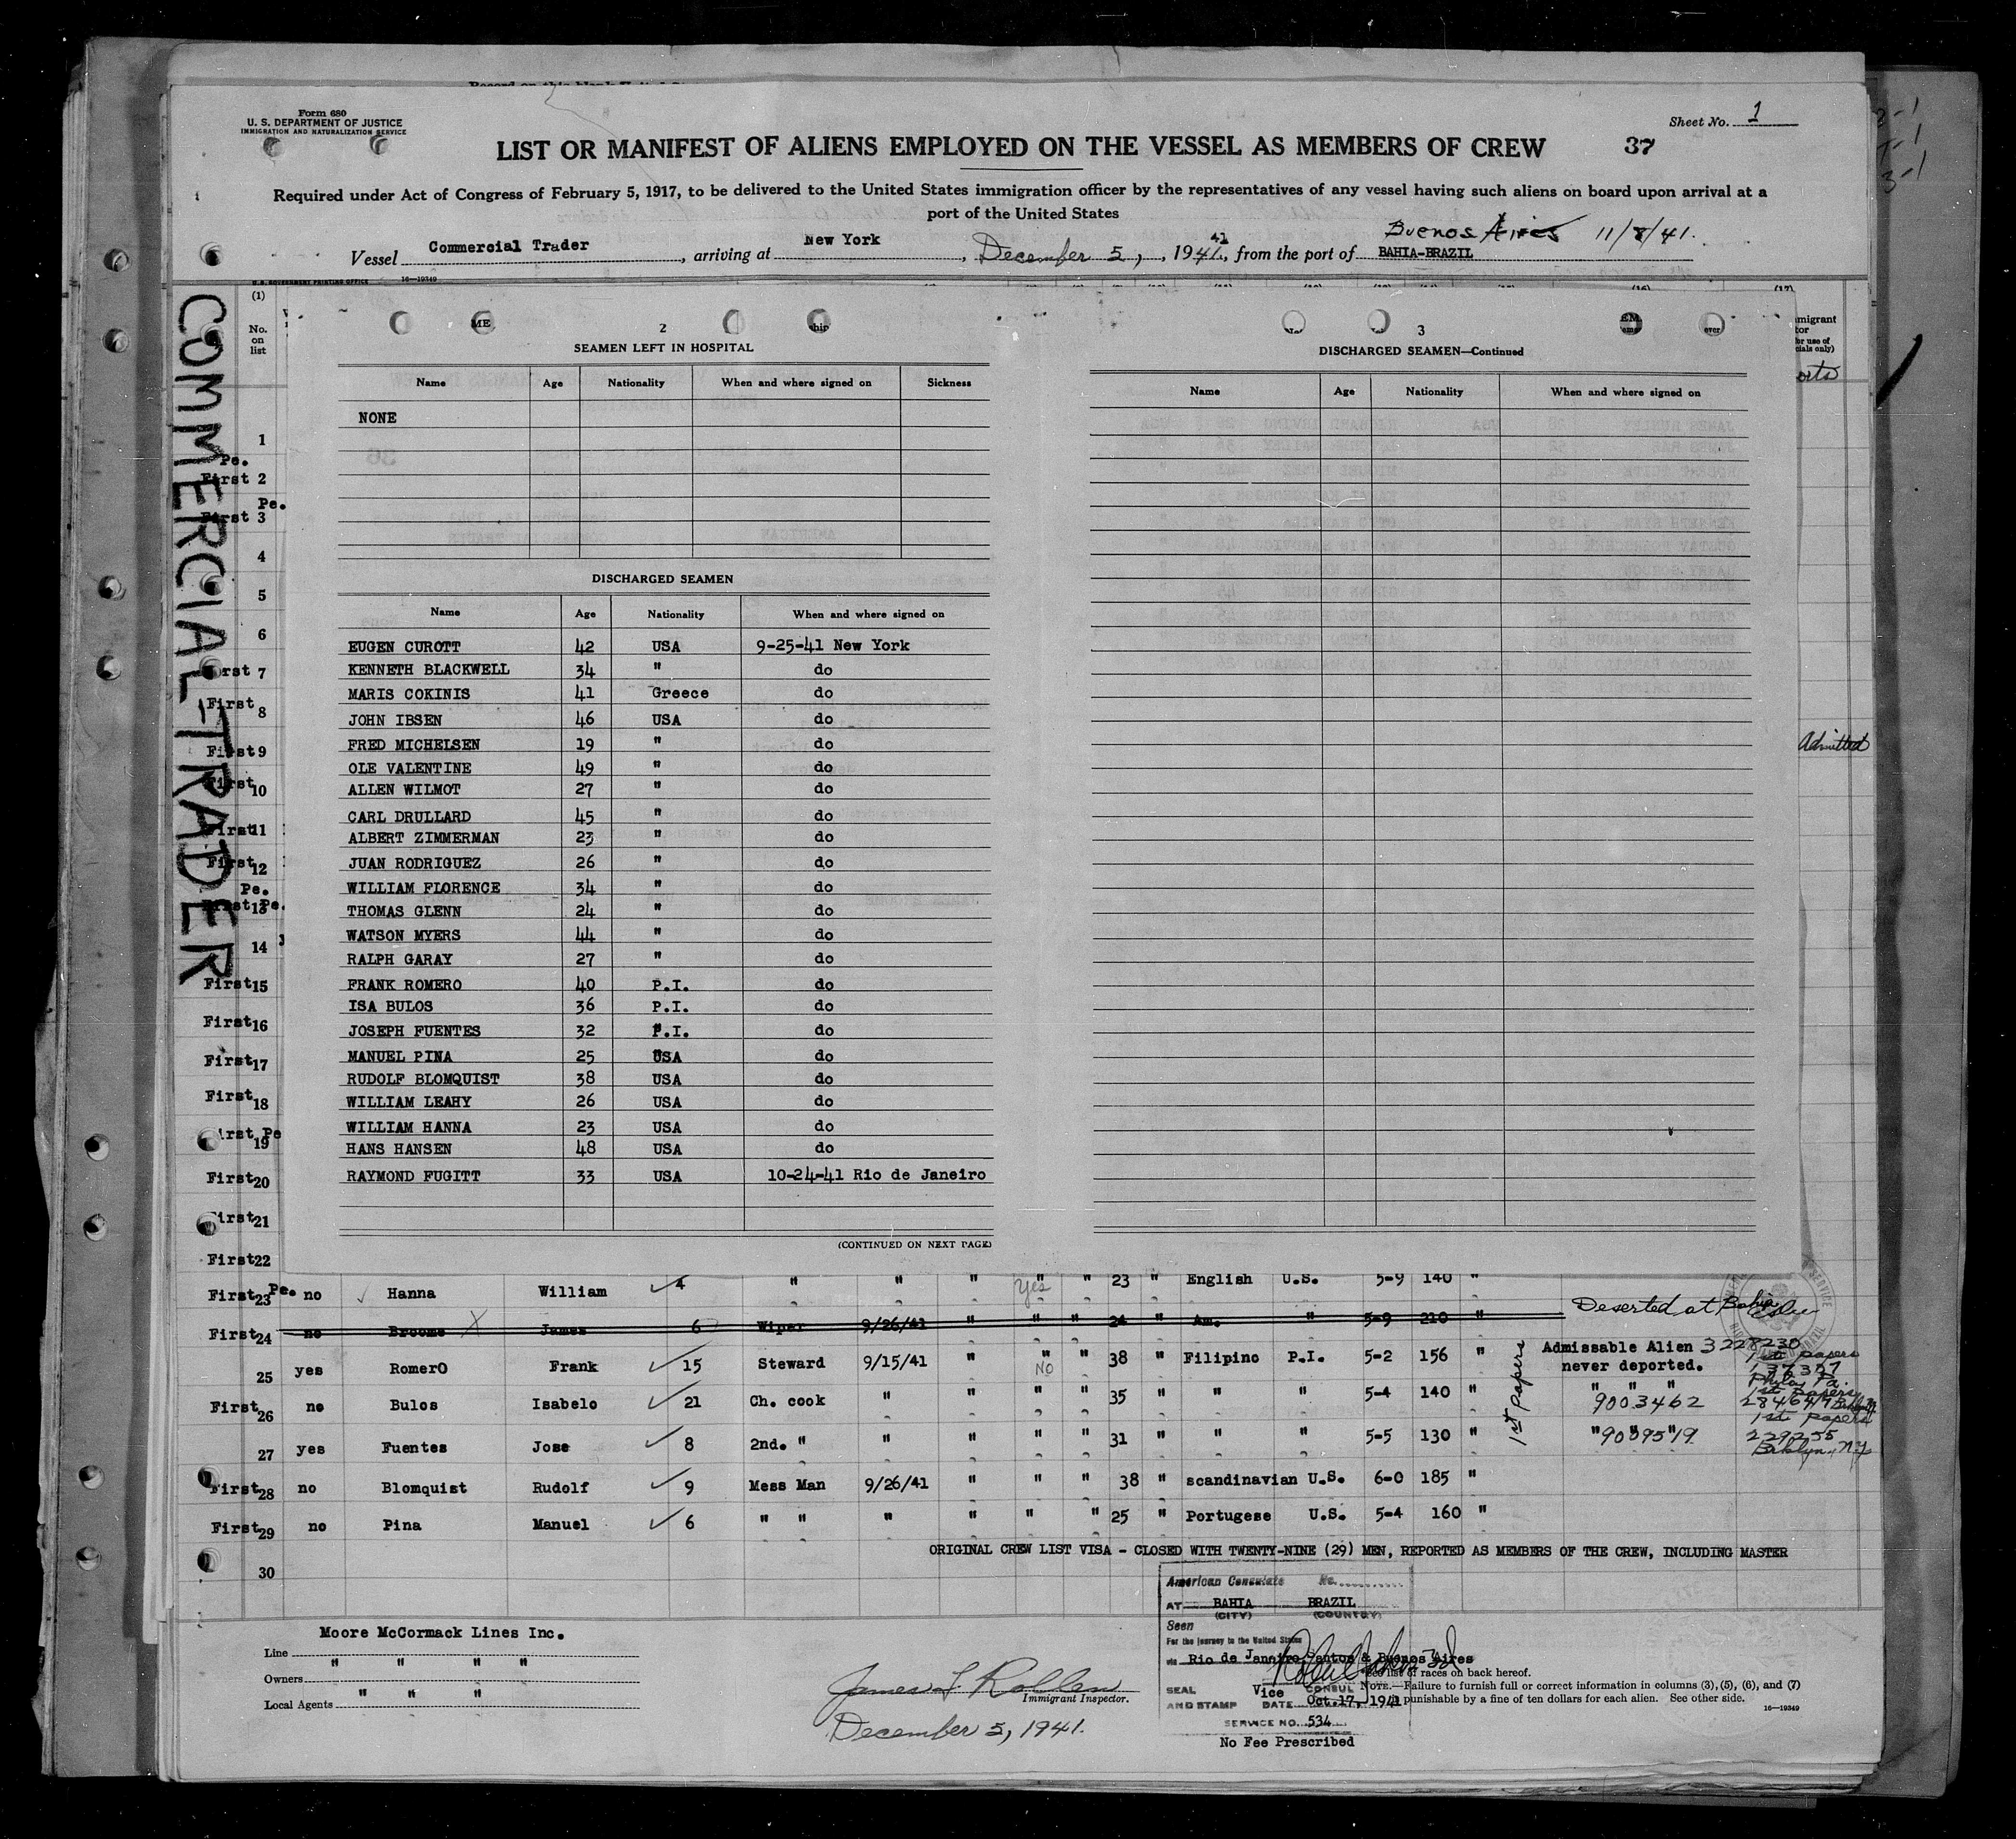 Form 680
U. S. DEPARTMENT OF JUSTICE
IMMIGRATION AND NATURALIZATION SERVICE
Sheet No. 1
LIST OR MANIFEST OF ALIENS EMPLOYED ON THE VESSEL AS MEMBERS OF CREW 37
Required under Act of Congress of February 5, 1917, to be delivered to the United States immigration officer by the representatives of any vessel having such aliens on board upon arrival at a
port of the United States
Buenos Aires 11/8/41.
Vessel Commercial Trader, arriving at New York, December 5, 1941, from the port of BAHIA-BRAZIL
U. S. GOVERNMENT PRINTING OFFICE 16—19349
COMMERCIAL-TRADER
(1)
No.
on
list
2
SEAMEN LEFT IN HOSPITAL
Name Age Nationality When and where signed on Sickness
NONE
DISCHARGED SEAMEN
Name Age Nationality When and where signed on
EUGEN CUROTT 42 USA 9-25-41 New York
KENNETH BLACKWELL 34 " do
MARIS COKINIS 41 Greece do
JOHN IBSEN 46 USA do
FRED MICHELSEN 19 " do
OLE VALENTINE 49 " do
ALLEN WILMOT 27 " do
CARL DRULLARD 45 " do
ALBERT ZIMMERMAN 23 " do
JUAN RODRIGUEZ 26 " do
WILLIAM FLORENCE 34 " do
THOMAS GLENN 24 " do
WATSON MYERS 44 " do
RALPH GARAY 27 " do
FRANK ROMERO 40 P.I. do
ISA BULOS 36 P.I. do
JOSEPH FUENTES 32 P.I. do
MANUEL PINA 25 USA do
RUDOLF BLOMQUIST 38 USA do
WILLIAM LEAHY 26 USA do
WILLIAM HANNA 23 USA do
HANS HANSEN 48 USA do
RAYMOND FUGITT 33 USA 10-24-41 Rio de Janeiro
(CONTINUED ON NEXT PAGE)
3
DISCHARGED SEAMEN—Continued
Name Age Nationality When and where signed on
Admitted
1
Pe.
First 2
Pe.
First 3
4
5
6
First 7
First 8
First 9
First 10
First 11
First 12
Pe.
First 13 Pe.
14
First 15
First 16
First 17
First 18
First Pe
19
First 20
First 21
First 22
First 23 Pe. no Hanna William 4 " " " " Yes " 23 " English U.S. 5-9 140 "
First 24 no Broome James 6 Wiper 9/26/41 " " " 24 " Am. " 5-9 210 " Deserted at Bahia
25 yes RomerO Frank 15 Steward 9/15/41 " " NO " 38 " Filipino P.I. 5-2 156 " 1st papers Admissable Alien 3228230
never deported. 1st papers
137327
Phila, Pa.
First 26 no Bulos Isabelo 21 Ch. cook " " " " 35 " " " 5-4 140 " " " " 9003462 1st papers
1st papers
27 yes Fuentes Jose 8 2nd. " " " " " 31 " " " 5-5 130 " "9009519 229255
Brklyn, N.Y
First 28 no Blomquist Rudolf 9 Mess Man 9/26/41 " " " 38 " scandinavian U.S. 6-0 185 "
First 29 no Pina Manuel 6 " " " " " " 25 " Portugese U.S. 5-4 160 "
ORIGINAL CREW LIST VISA - CLOSED WITH TWENTY-NINE (29) MEN, REPORTED AS MEMBERS OF THE CREW, INCLUDING MASTER
30
American Consulate No.
AT BAHIA BRAZIL
(CITY) (COUNTRY)
Seen
For the journey to the United States
via Rio de Janeiro Santos & Buenos Aires
SEAL Vice CONSUL
AND STAMP DATE Oct.17, 1941
SERVICE NO. 534
No Fee Prescribed
Moore McCormack Lines Inc.
Line " " " "
Owners " " "
Local Agents " " "
James L Rollen
Immigrant Inspector.
December 5, 1941.
See list of races on back hereof.
NOTE.—Failure to furnish full or correct information in columns (3), (5), (6), and (7)
is punishable by a fine of ten dollars for each alien. See other side.
16—19349